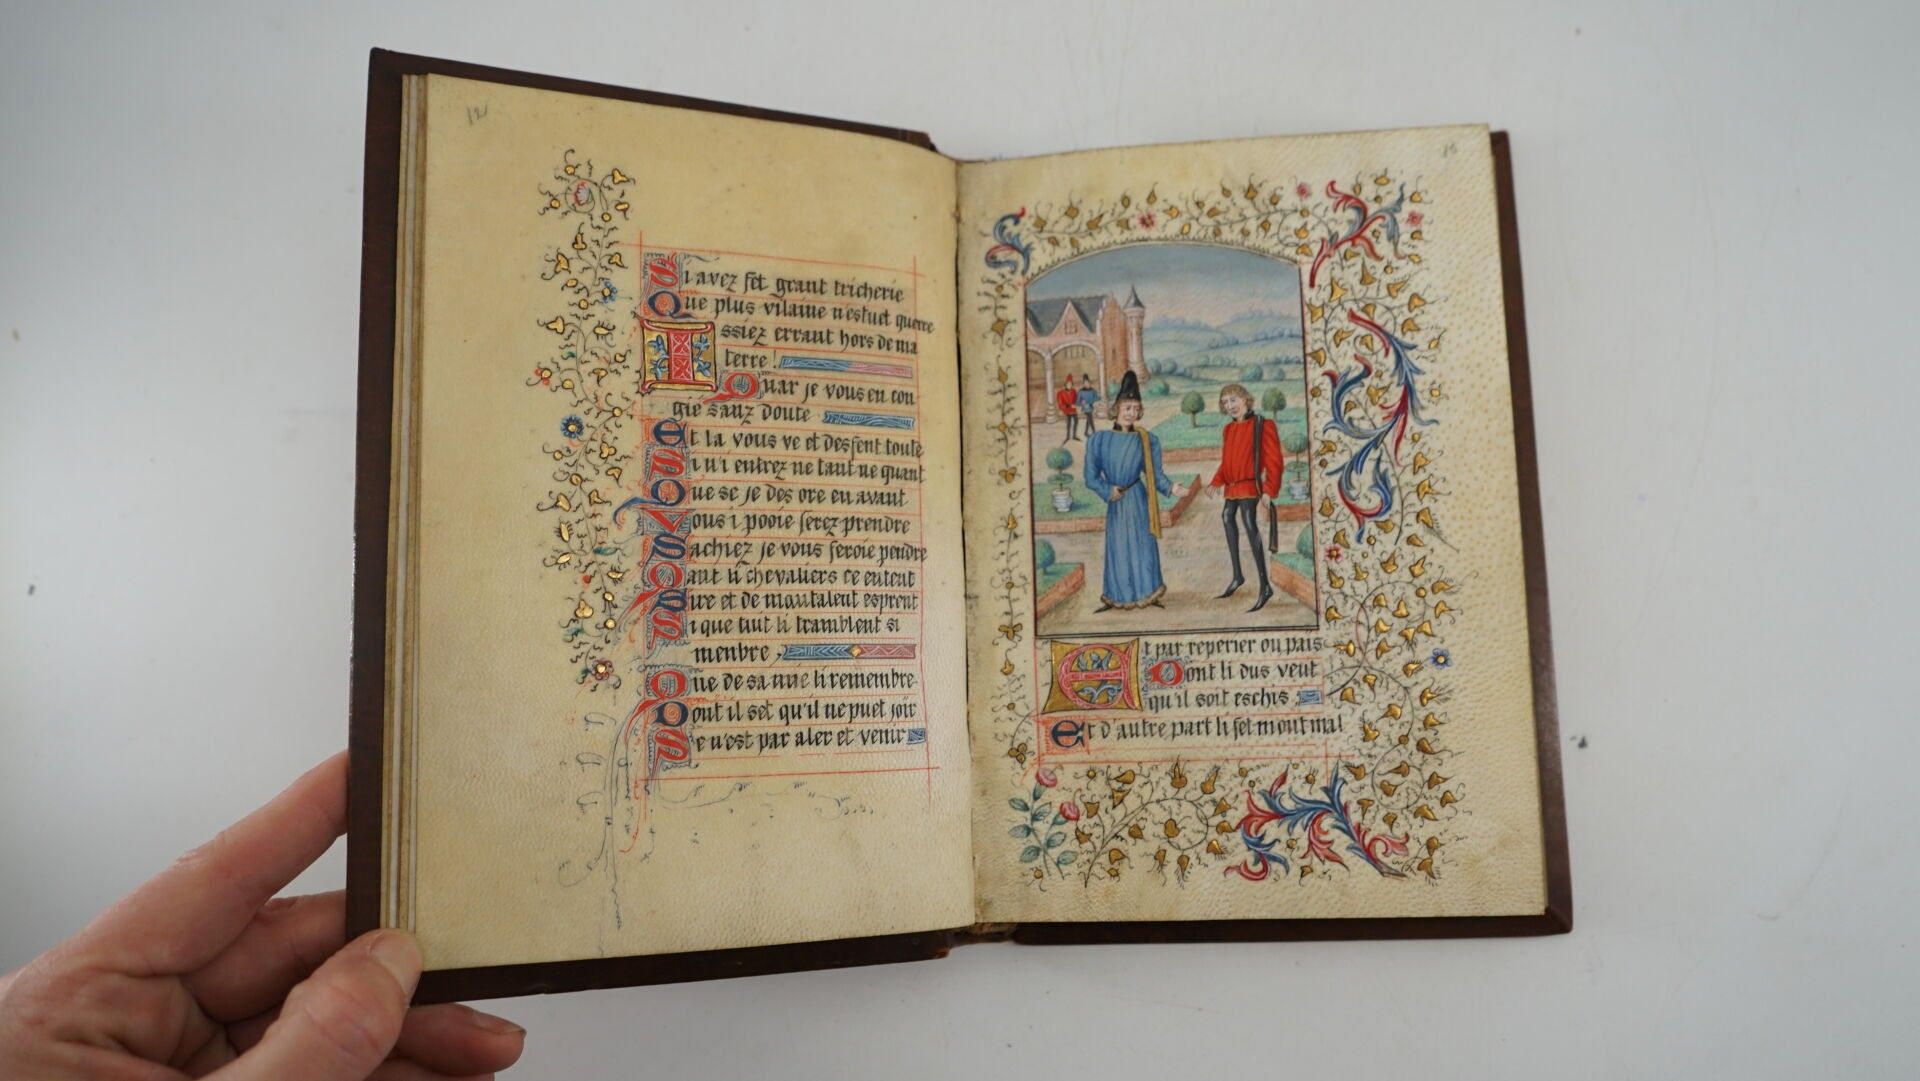 12
Si avez fet grant tricherie
Que plus vilaine n'estuet querre
Issiez errant hors de ma
terre !
Quar je vous en con
gie sanz doute
Et la vous ve et deffent toute
Si n'i entrez ne tant ne quant
Que se je des ore en avant
Vous i pooie serez prendre
Sachiez je vous feroie pendre
Quant li chevaliers ce entent
Sire et de mautalent esprent
Si que tuit li tramblent si
menbre,
Que de sa mie li remembre
Dont il set qu'il ne puet joïr
Se n'est par aler et venir
Et par reperier ou païs
Dont li dus veut
qu'il soit eschis,
Et d'autre part li fet mont mal